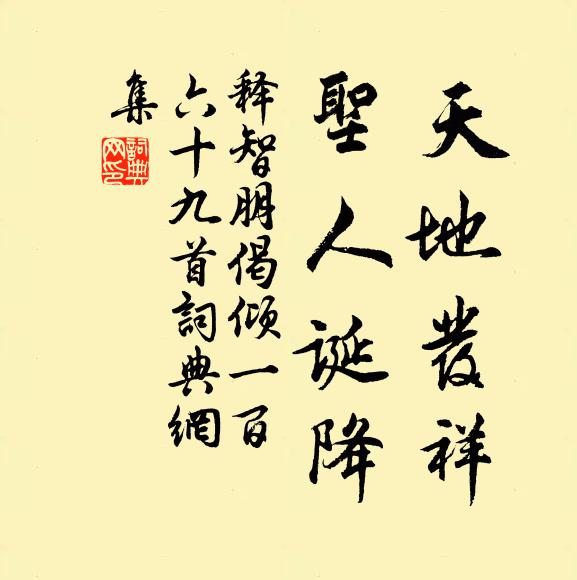 天地發祥
聖人誕降
释智朋偈倾一百
六十九首詞典網
集
詞典
网印